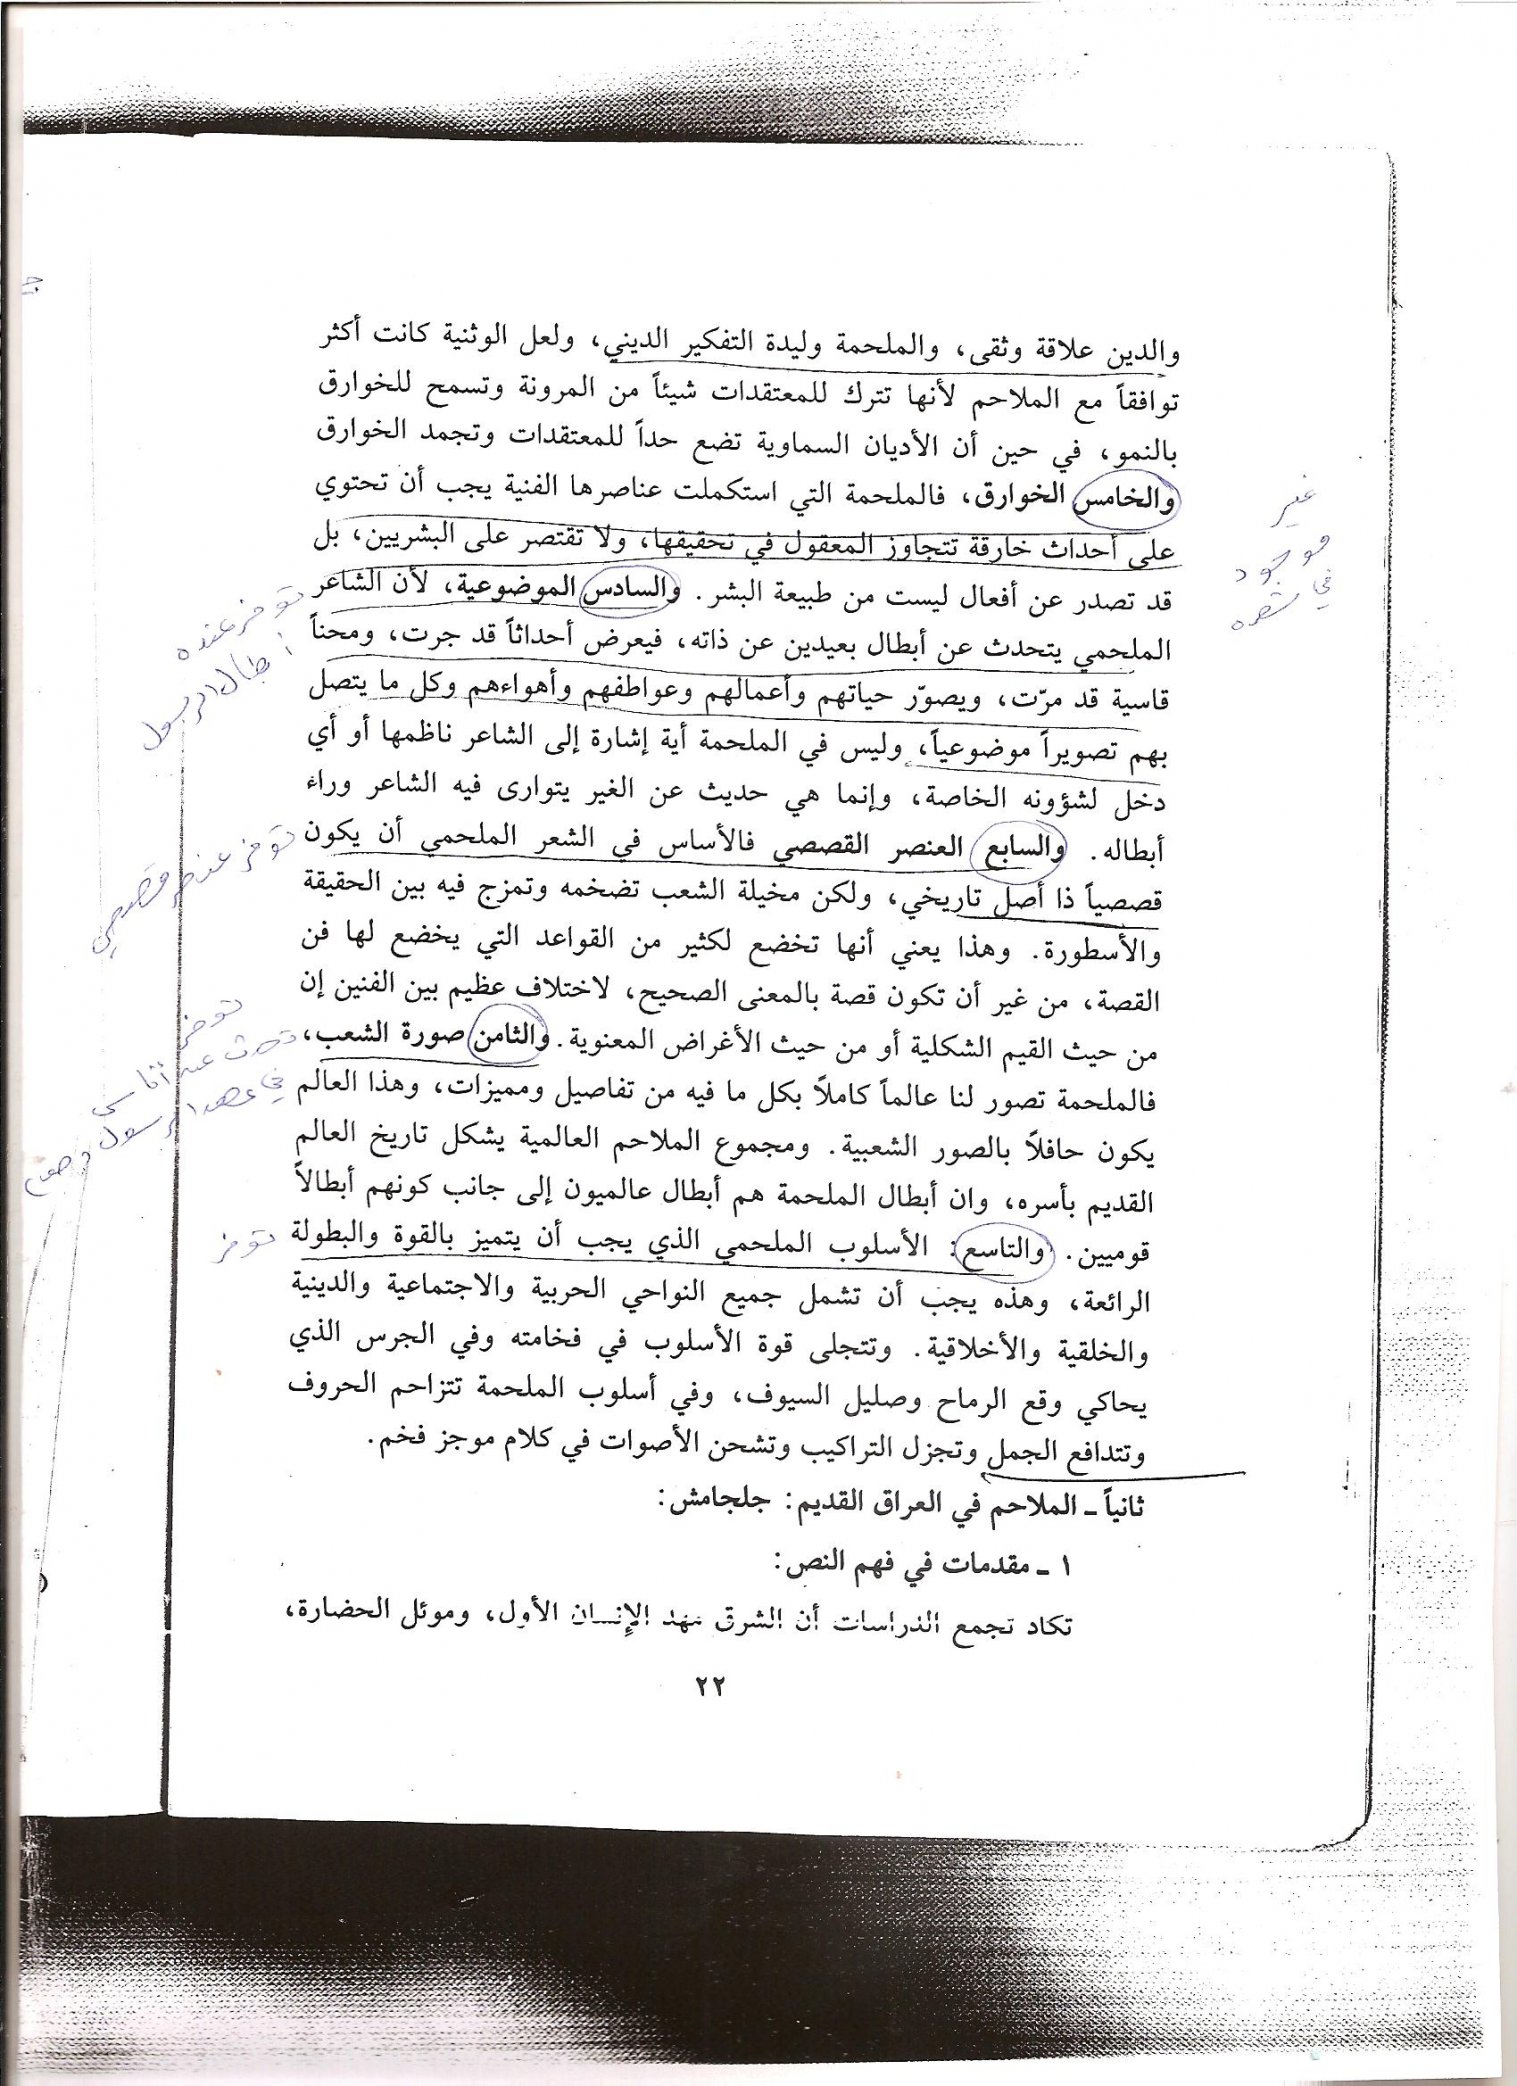 والدين علاقة وثقى، والملحمة وليدة التفكير الديني، ولعل الوثنية كانت أكثر
توافقاً مع الملاحم لأنها تترك للمعتقدات شيئاً من المرونة وتسمح للخوارق
بالنمو، في حين أن الأديان السماوية تضع حداً للمعتقدات وتجمد الخوارق
والخامس الخوارق، فالملحمة التي استكملت عناصرها الفنية يجب أن تحتوي
على أحداث خارقة تتجاوز المعقول في تحقيقها، ولا تقتصر على البشريين، بل
قد تصدر عن أفعال ليست من طبيعة البشر. والسادس الموضوعية، لأن الشاعر
الملحمي يتحدث عن أبطال بعيدين عن ذاته، فيعرض أحداثاً قد جرت، ومحناً
قاسية قد مرّت، ويصوّر حياتهم وأعمالهم وعواطفهم وأهواءهم وكل ما يتصل
بهم تصويراً موضوعياً، وليس في الملحمة أية إشارة إلى الشاعر ناظمها أو أي
دخل لشؤونه الخاصة، وإنما هي حديث عن الغير يتوارى فيه الشاعر وراء
أبطاله. والسابع العنصر القصصي فالأساس في الشعر الملحمي أن يكون
قصصياً ذا أصل تاريخي، ولكن مخيلة الشعب تضخمه وتمزج فيه بين الحقيقة
والأسطورة. وهذا يعني أنها تخضع لكثير من القواعد التي يخضع لها فن
القصة، من غير أن تكون قصة بالمعنى الصحيح، لاختلاف عظيم بين الفنين إن
من حيث القيم الشكلية أو من حيث الأغراض المعنوية. والثامن صورة الشعب،
فالملحمة تصور لنا عالماً كاملاً بكل ما فيه من تفاصيل ومميزات، وهذا العالم
يكون حافلاً بالصور الشعبية. ومجموع الملاحم العالمية يشكل تاريخ العالم
القديم بأسره، وان أبطال الملحمة هم أبطال عالميون إلى جانب كونهم أبطالاً
قوميين. والتاسع: الأسلوب الملحمي الذي يجب أن يتميز بالقوة والبطولة
الرائعة، وهذه يجب أن تشمل جميع النواحي الحربية والاجتماعية والدينية
والخلقية والأخلاقية. وتتجلى قوة الأسلوب في فخامته وفي الجرس الذي
يحاكي وقع الرماح وصليل السيوف، وفي أسلوب الملحمة تتزاحم الحروف
وتتدافع الجمل وتجزل التراكيب وتشحن الأصوات في كلام موجز فخم.
ثانياً ـ الملاحم في العراق القديم: جلجامش:
١ ـ مقدمات في فهم النص:
تكاد تجمع الدراسات أن الشرق مهد الإنسان الأول، وموئل الحضارة،
٢٢
غير
موجود
في شعره
توفر عنده
ابطال الرسول
توفر عنصر قصصي
توفر
تحدث عن
في عهد الرسول
توفر